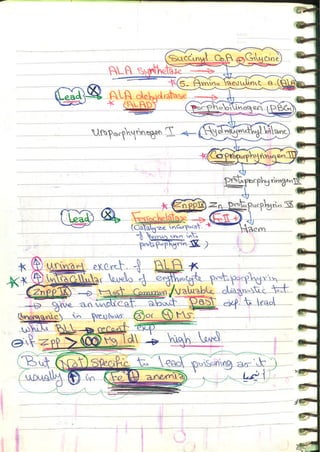 Succinyl CoA + Glycine
ALA synthetase
* 5. Amino laevulinic a. (ALA)
Lead ⊗ ALA dehydratase
* (ALAD)
Porphobilinogen (PBG)
Uroporphyrinogen I ← Hydroxymethyl bilane
* Coproporphyrinogen III
protoporphyrinogen IX
* Znpp IX Zn Protoporphyrin IX
Lead ⊗ Ferrochelatase Fe II +
(Catalyze incorporat Haem
of ferrous iron into
protoporphyrin IX)
* ↑ urinary excret. of ALA *
* * ↑ intracellular levels of erythrocyte protoporphyrin
(Znpp IX) → Most Common / valuable diagnostic test
→ give an indicat about past exp to lead
inorganic in previous 3 or 4 Ms.
while BLL → recent exp
if ZPP > 100 Mg/dl → high level
But Not specific to lead poisoning as it
usually ↑ in Fe ↓ anemia